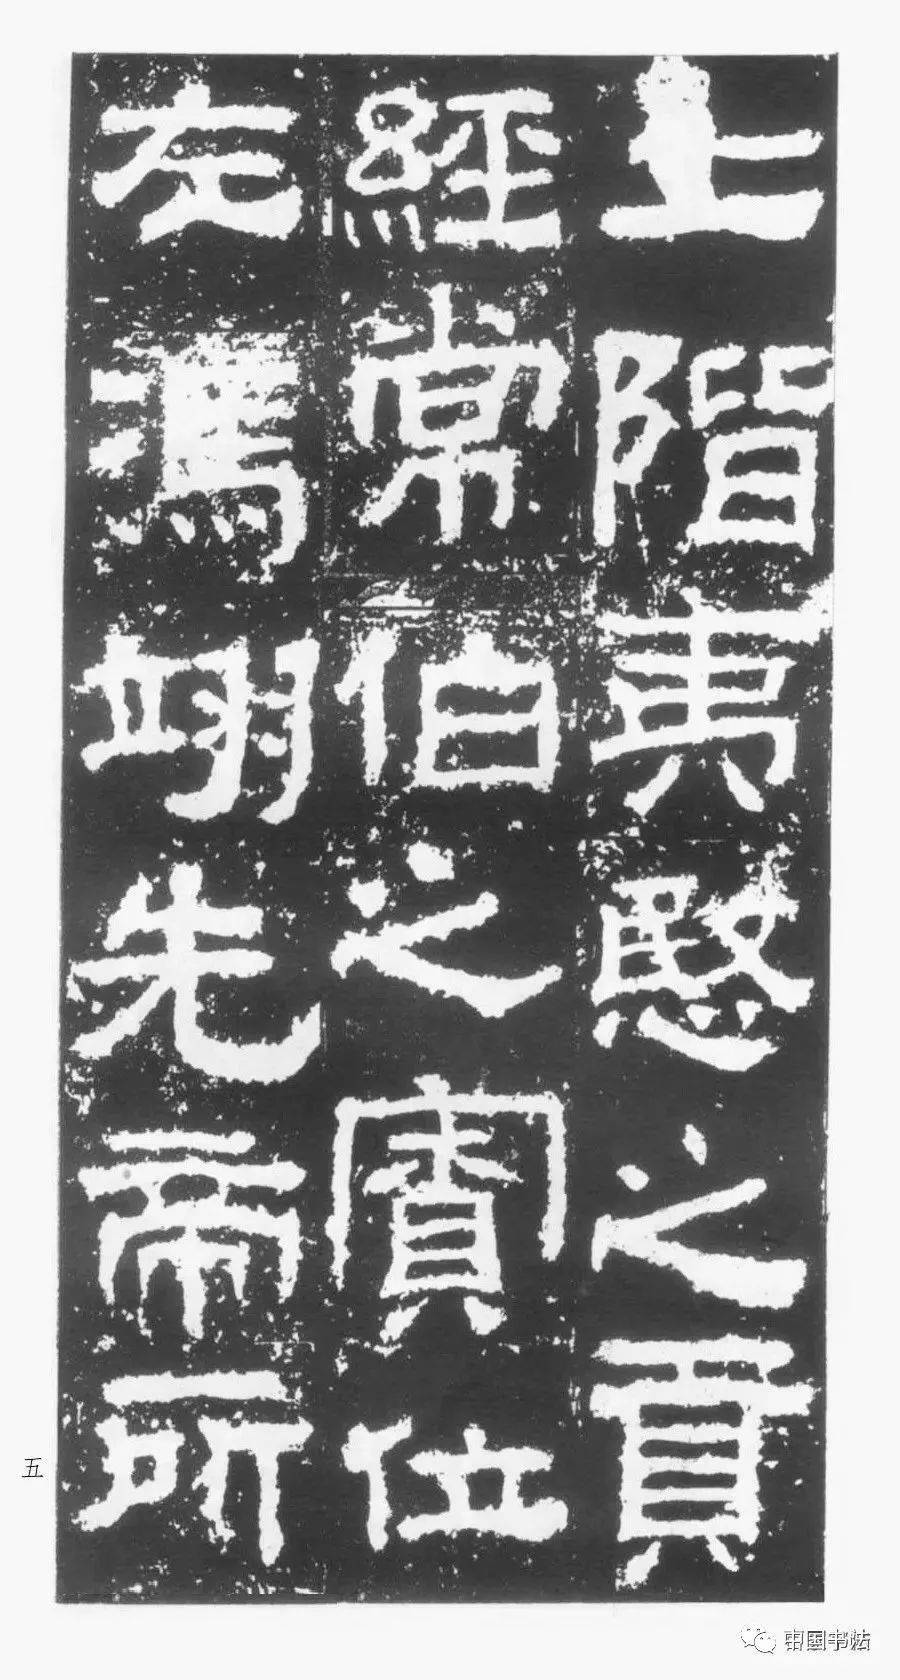 上階夷愍之貢
經常伯之賓位
左馮翊先帝所
五
中国书法